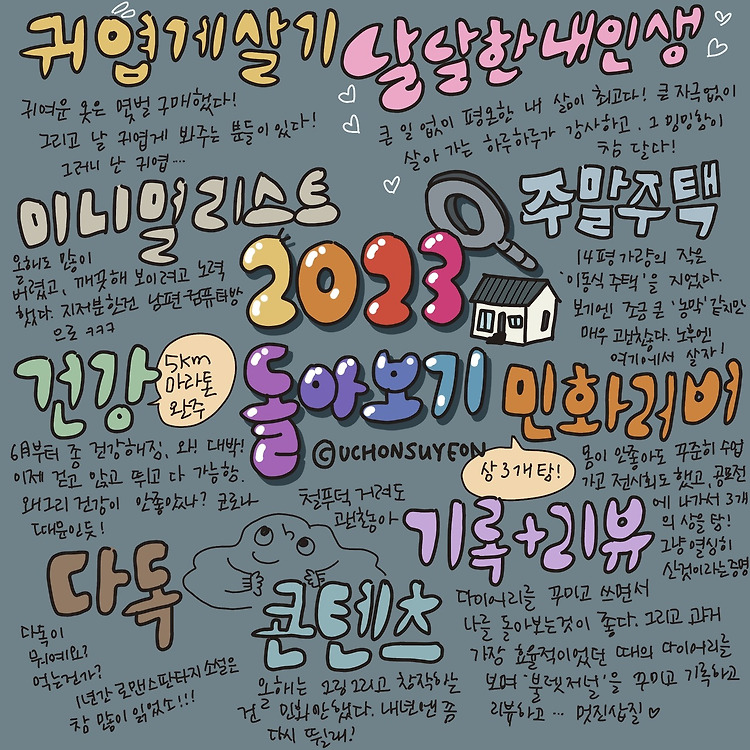 귀엽게살기
귀여운 옷은 몇벌 구매했다!
그리고 날 귀엽게 봐주는 분들이 있다!
그러니 난 귀엽...
달달한 내인생
큰 일 없이 평온한 내 삶이 최고다! 큰 자극없이
살아 가는 하루하루가 감사하고, 그 밍밍함이
참 달다!
미니멀리스트
올해도 많이
버렸고, 깨끗해 보이려고 노력
했다. 지저분한건 남편 컴퓨터방
으로 ㅋㅋㅋ
주말주택
14평 가량의 작은
'이동식 주택'을 지었다.
보기엔 조금 큰 '농막' 같지만
매우 괜찮다. 노후엔
여기에서 살자!
2023
돌아보기
©UCHONSUYEON
건강
5km
마라톤
완주
6월부터 좀 건강해짐, 와! 대박!
이제 걷고 앉고 뛰고 다 가능함.
왜그리 건강이 안좋았나? 코로나
때문인듯!
민화러버
상3개탐!
몸이 안좋아도 꾸준히 수업
가고 전시회도 했고, 공모전
에 나가서 3개
의 상을 탐!
그냥 열심히
산것이라는증명
철푸덕 거려도
괜찮아
기록+리뷰
다이어리를 꾸미고 쓰면서
나를 돌아보는것이 좋다. 그리고 과거
가장 효율적이었던 때의 다이어리를
보며 '불렛저널'을 꾸미고 기록하고
리뷰하고... 멋진삽질♡
다독
다독이
뭐예요?
먹는건가?
1년간 로맨스판타지소설은
참 많이 읽었소!!!
콘텐츠
올해는 그림그리고 창작하는
건 민화만했다. 내년엔 좀
다시 뛸래!